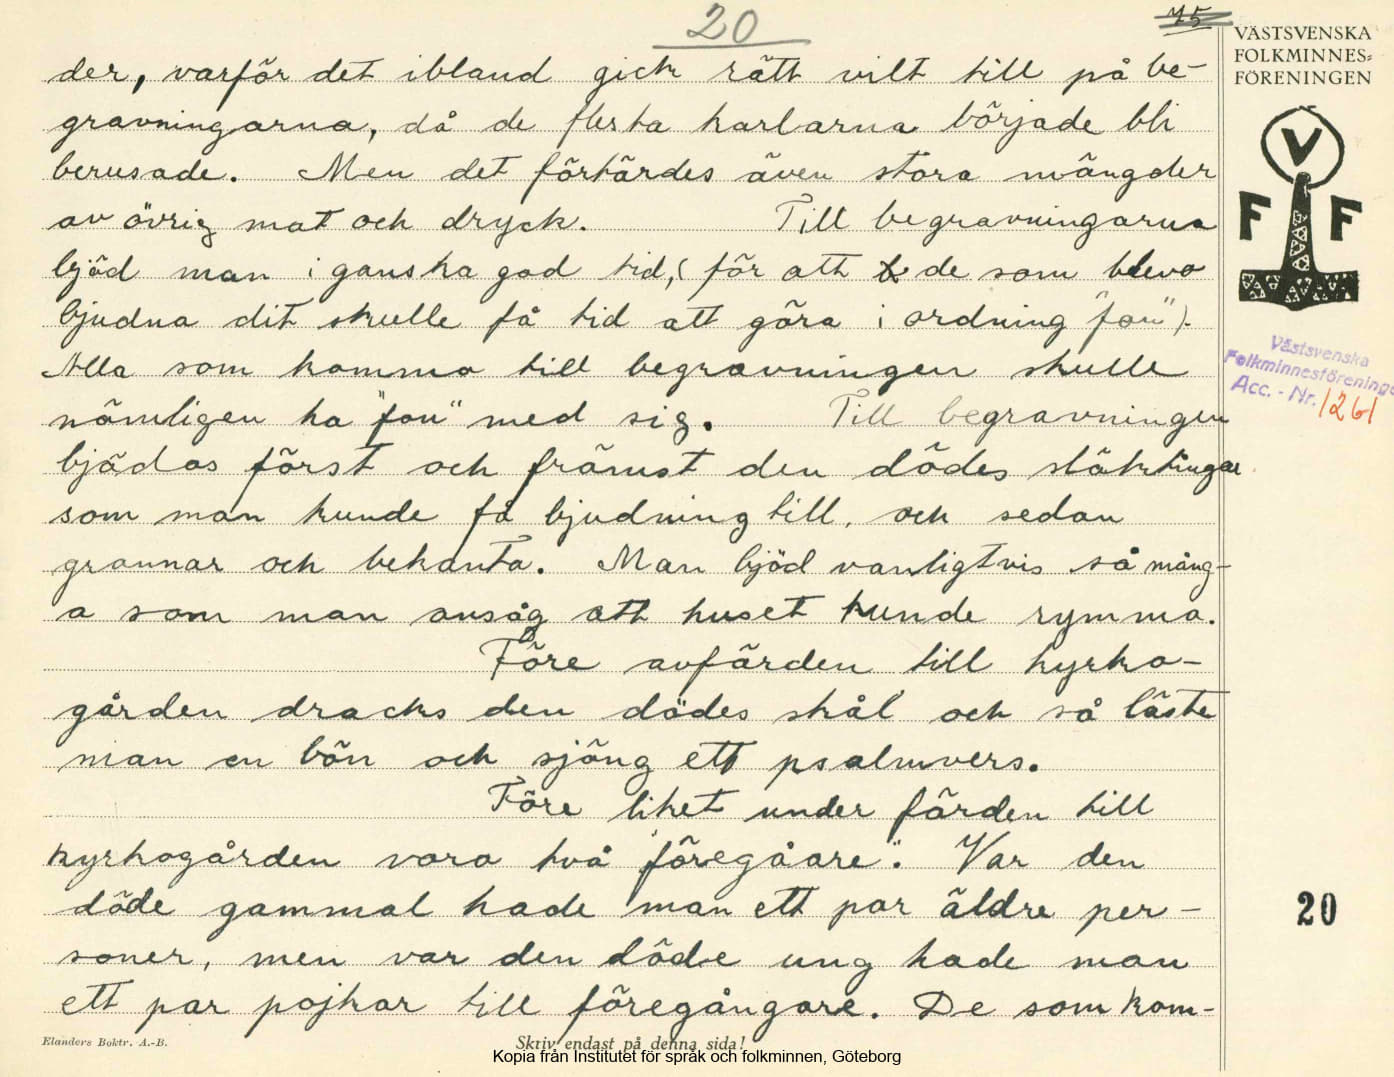 20
75
VÄSTSVENSKA
FOLKMINNES=
FÖRENINGEN
V
F F
Västsvenska
Folkminnesförening
Acc. - Nr. 1261
der, varför det ibland gick rätt vilt till på be-
gravningarna, då de flesta karlarna började bli
berusade. Men det förtärdes även stora mängder
av övrig mat och dryck. Till begravningarna
bjöd man i ganska god tid, (för att de som blevo
bjudna dit skulle få tid att göra i ordning "fon").
Alla som kommo till begravningen skulle
nämligen ha "fon" med sig. Till begravningen
bjödos först och främst den dödes släktingar
som man kunde få bjudning till, och sedan
grannar och bekanta. Man bjöd vanligtvis så mång-
a som man ansåg att huset kunde rymma.
Före avfärden till kyrko-
gården dracks den dödes skål och så läste
man en bön och sjöng ett psalmvers.
Före liket under färden till
kyrkogården voro två "föregåare". Var den
döde gammal hade man ett par äldre per-
soner, men var den döde ung hade man
ett par pojkar till föregångare. De som kom-
20
Elanders Boktr. A.-B.
Skriv endast på denna sida!
Kopia från Institutet för språk och folkminnen, Göteborg